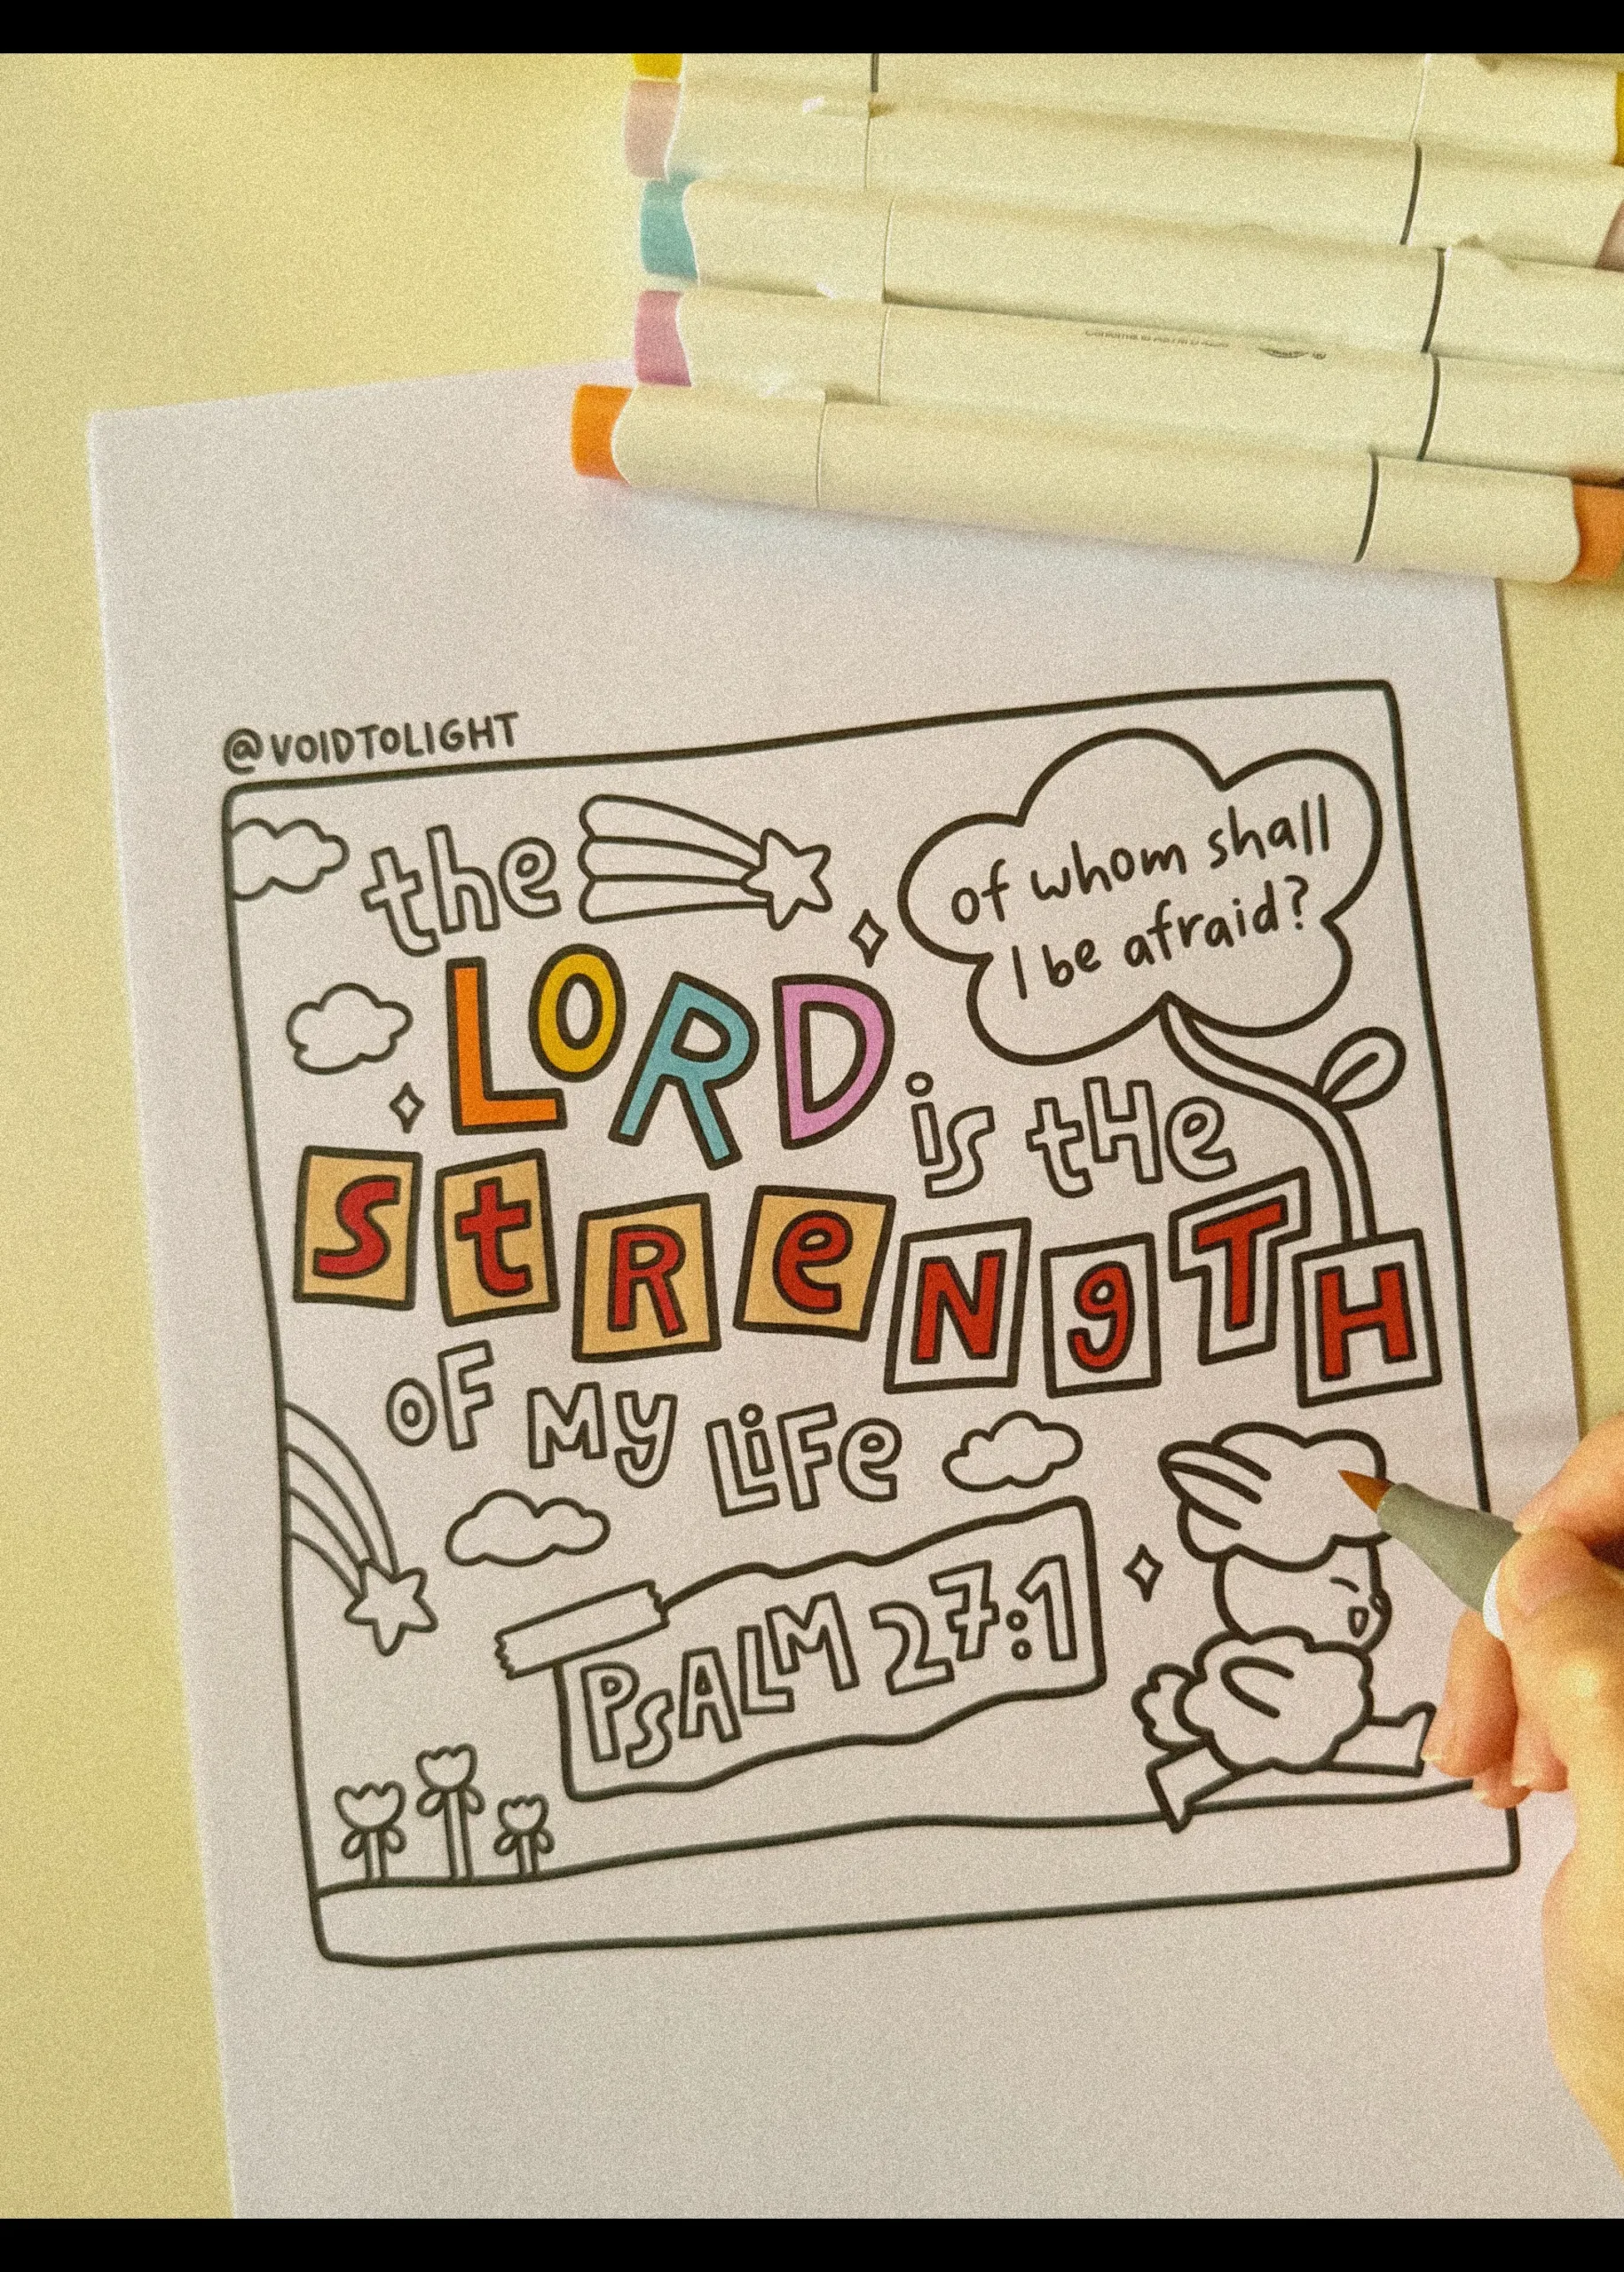 @VOIDTOLIGHT
the
of whom shall
I be afraid?
LORD
is tHe
StReNgTH
OF My LiFe
PsALM 27:1